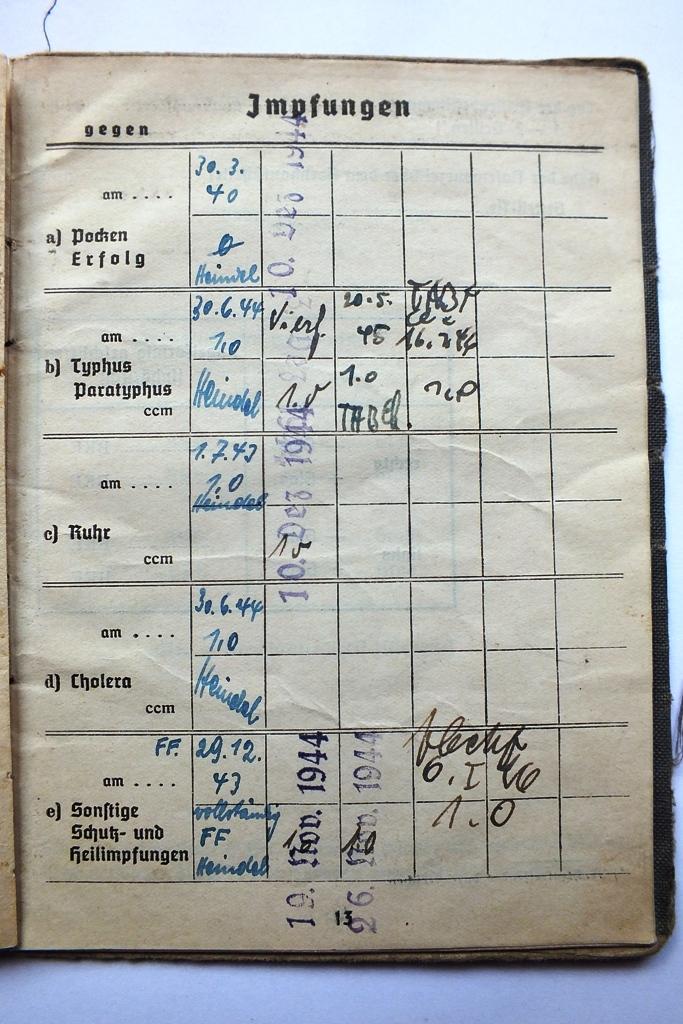 Impfungen
gegen
am .... 30.3. 40
a) Pocken
Erfolg
Heindel
10. Dez 1944
am .... 30.6.44 1,0
20.5. 45
TABF
16.2.44
b) Typhus
Paratyphus
ccm
Heindel
1.0
TABCh.
1,0
am .... 1.7.43 1,0
Heindel
c) Ruhr
ccm
10. Dez 1944
am .... 30.6.44 1,0
d) Cholera
ccm
Heindel
FF. 29.12. 43
am ....
6. I 46
1.0
e) Sonstige
Schutz- und
Heilimpfungen
vollständig
FF
Heindel
19. Nov. 1944
26. Nov. 1944
13